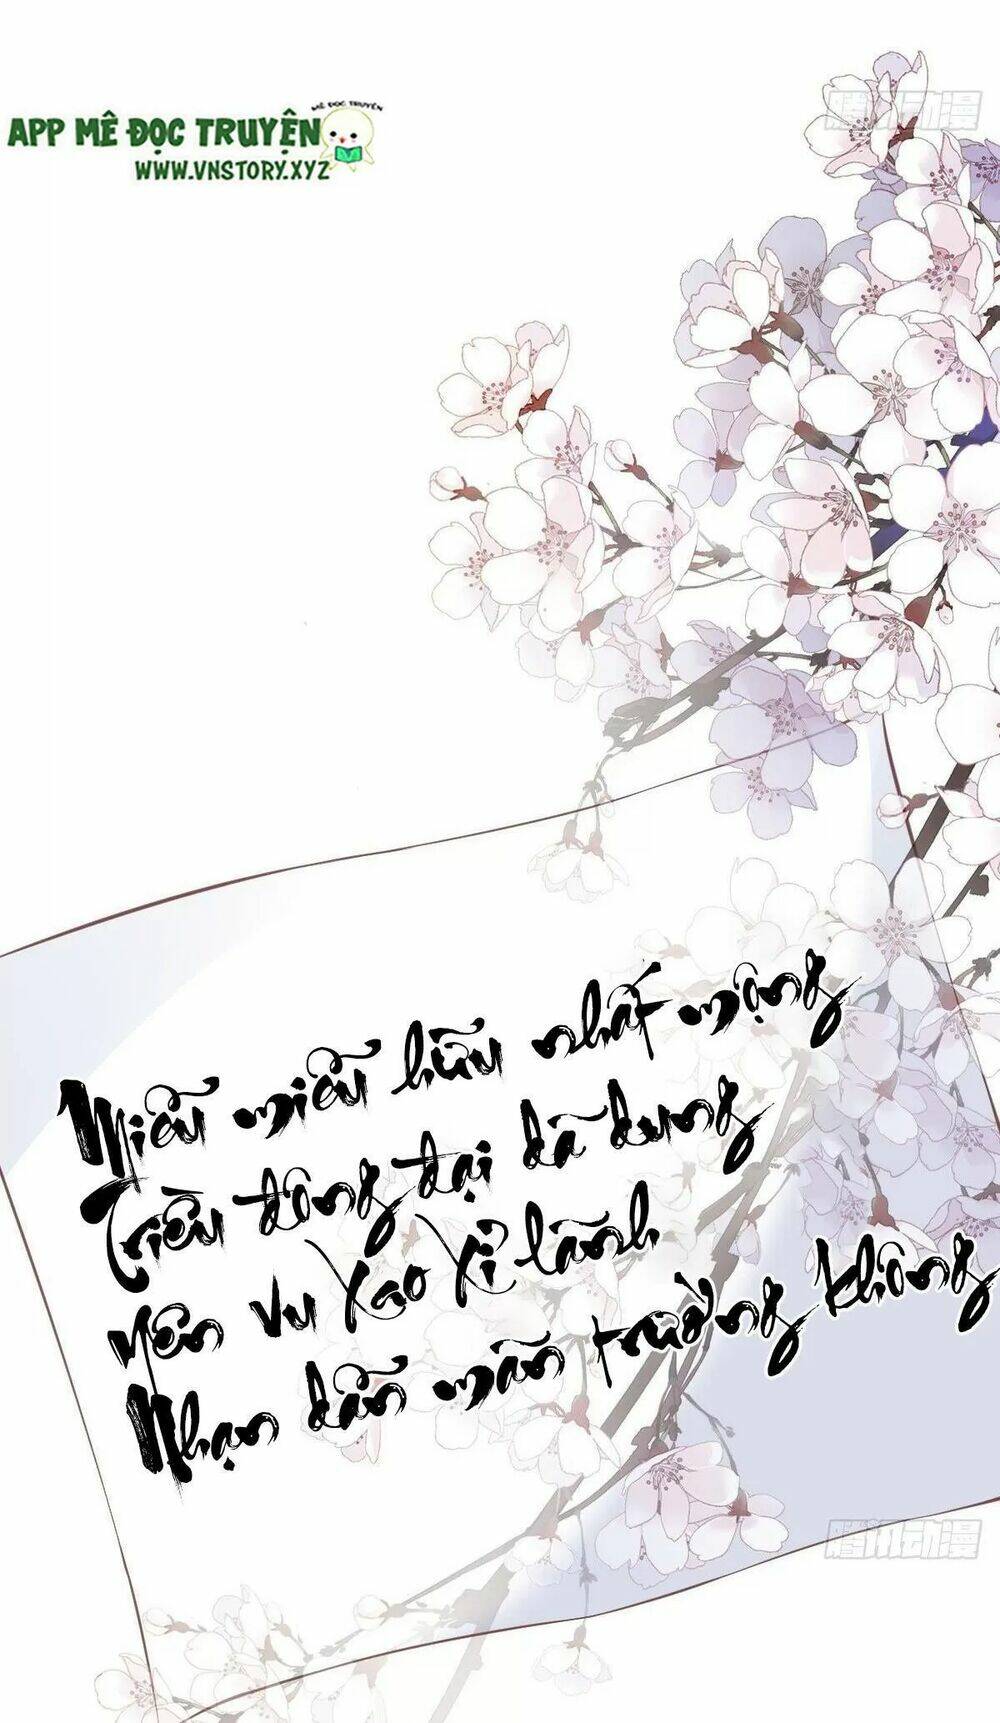 MÊ ĐỌC TRUYỆN
APP MÊ ĐỌC TRUYỆN
WWW.VNSTORY.XYZ
腾讯动漫
Miểu miểu hữu nhất mộng
Triều đông đại dã dung
Yên vu xạo xỉ lãnh
Nhạn dẫn mãn trường không
腾讯动漫